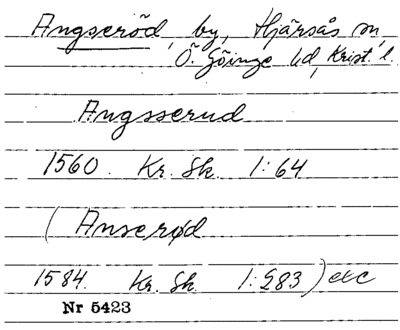 Angseröd, by, Hjärsås sn,
Ö. Göinge hd, Krist. l.
Angsserud
1560. Kr. Sk. 1:64
( Anserød
1584. Kr. Sk 1:283 ) etc
Nr 5423